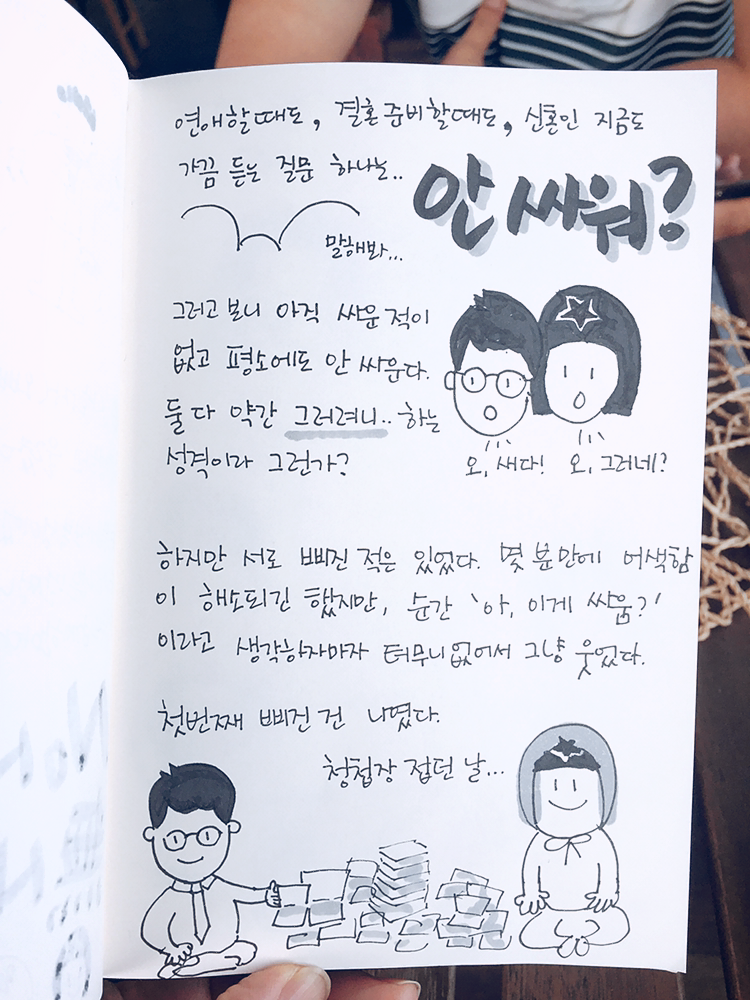 연애할때도, 결혼준비할때도, 신혼인 지금도
가끔 듣는 질문 하나는..
안 싸워?
말해봐...
그러고 보니 아직 싸운 적이
없고 평소에도 안 싸운다.
둘 다 약간 그러려니.. 하는
성격이라 그런가?
오, 새다! 오, 그러네?
하지만 서로 삐진 적은 있었다. 몇 분만에 어색함
이 해소되긴 했지만, 순간 '아, 이게 싸움?'
이라고 생각하자마자 터무니없어서 그냥 웃었다.
첫번째 삐진 건 나였다.
청첩장 접던 날...